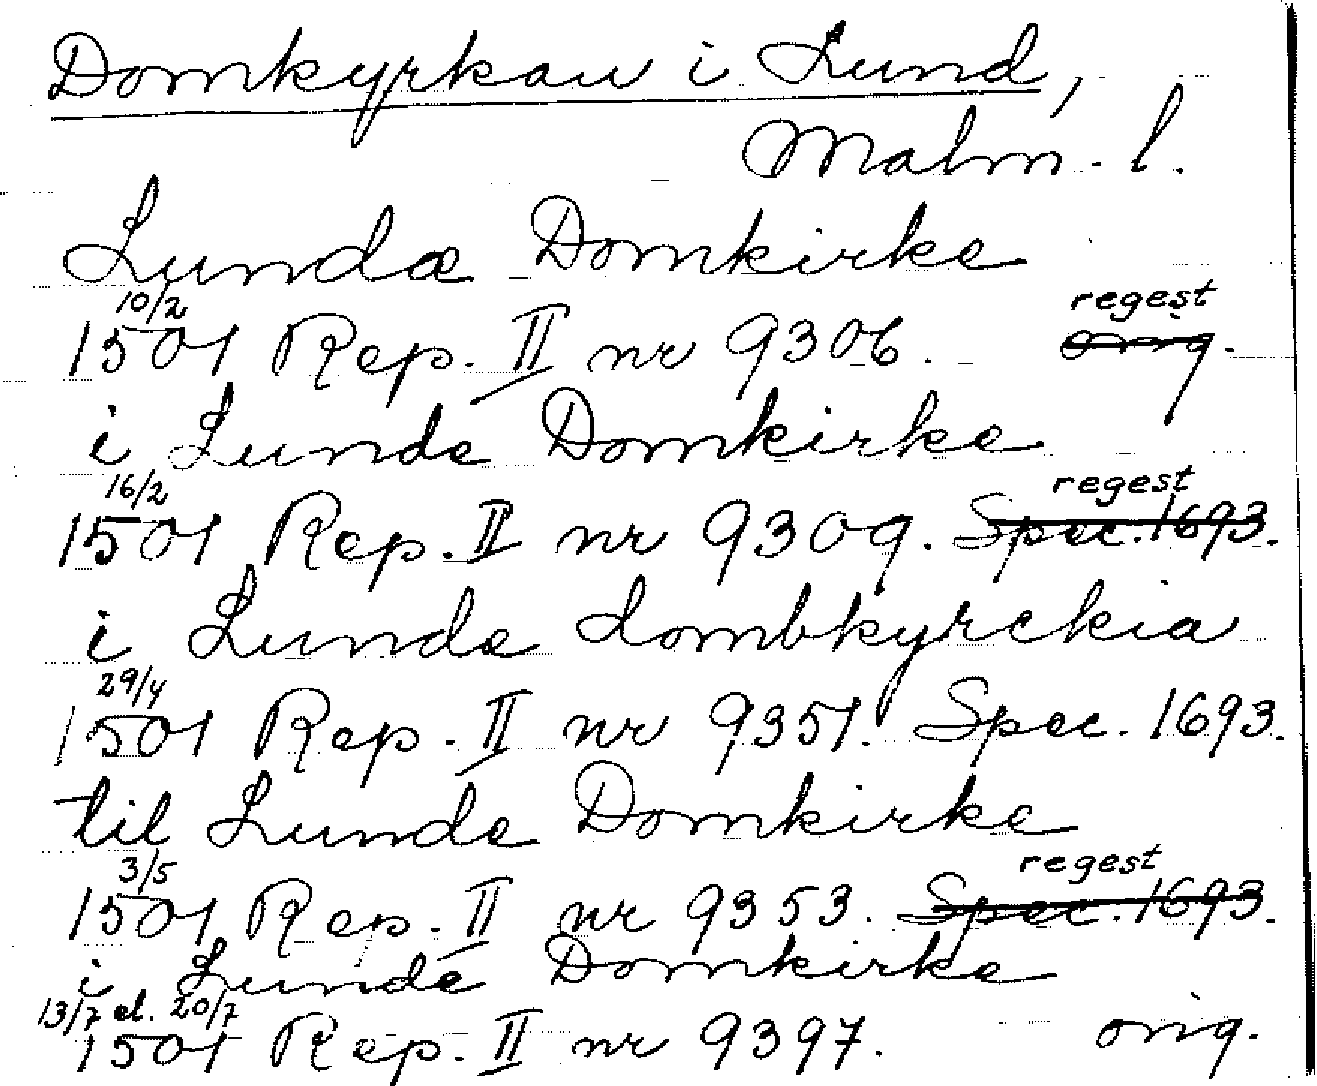 Domkyrkan i Lund,
Malm. l.
Lundæ Domkirke
10/2 regest
1501 Rep. II nr 9306. orig.
i Lunde Domkirke
16/2 regest
1501 Rep. II nr 9309. Spec. 1693.
i Lunde dombkyrckia
29/4
1501 Rep. II nr 9351. Spec. 1693.
til Lunde Domkirke
3/5 regest
1501 Rep. II nr 9353. Spec. 1693.
i Lunde Domkirke
13/7 el. 20/7
1501 Rep. II nr 9397. orig.